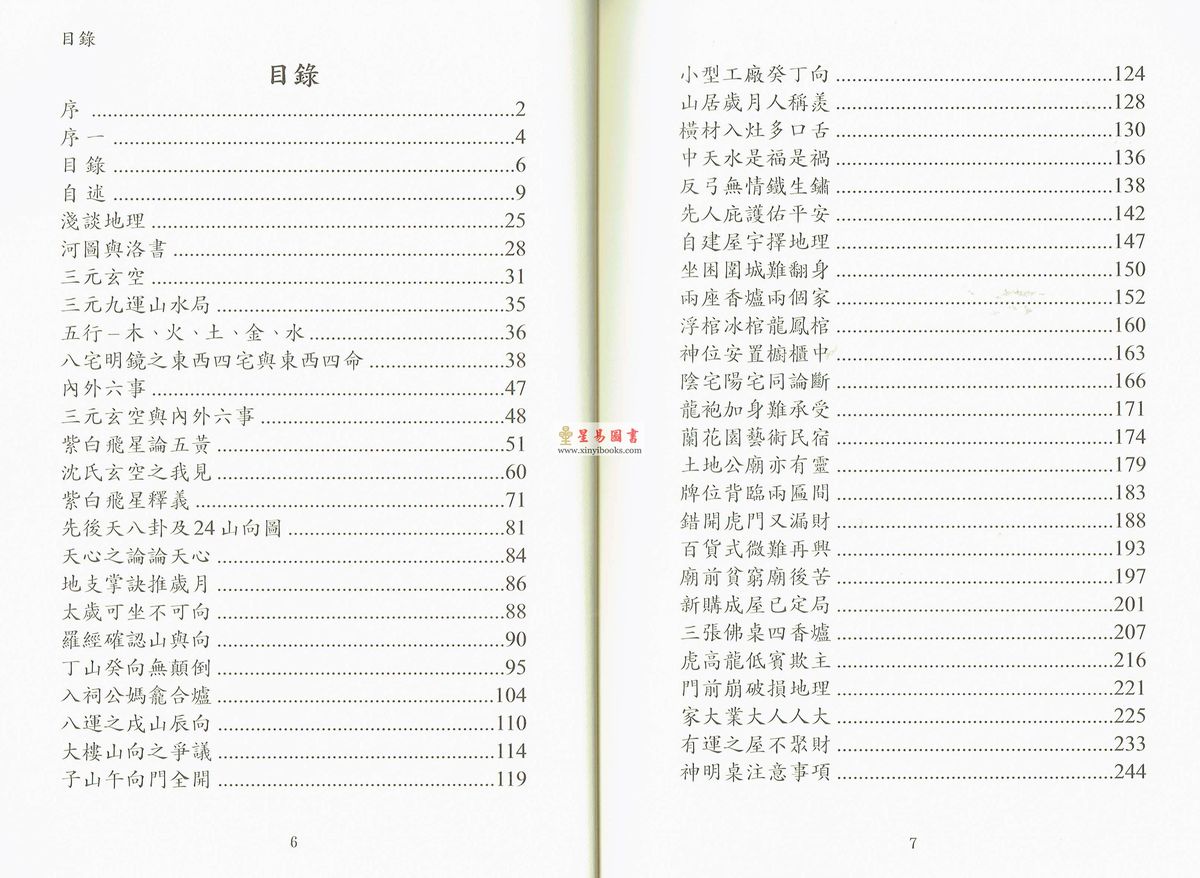 目錄
目錄
序 ........ 2
序一 ........ 4
目錄 ........ 6
自述 ........ 9
淺談地理 ........ 25
河圖與洛書 ........ 28
三元玄空 ........ 31
三元九運山水局 ........ 35
五行–木、火、土、金、水 ........ 36
八宅明鏡之東西四宅與東西四命 ........ 38
內外六事 ........ 47
三元玄空與內外六事 ........ 48
紫白飛星論五黃 ........ 51
沈氏玄空之我見 ........ 60
紫白飛星釋義 ........ 71
先後天八卦及24山向圖 ........ 81
天心之論論天心 ........ 84
地支掌訣推歲月 ........ 86
太歲可坐不可向 ........ 88
羅經確認山與向 ........ 90
丁山癸向無顛倒 ........ 95
入祠公媽龕合爐 ........ 104
八運之戌山辰向 ........ 110
大樓山向之爭議 ........ 114
子山午向門全開 ........ 119
6
小型工廠癸丁向 ........ 124
山居歲月人稱羨 ........ 128
橫材入灶多口舌 ........ 130
中天水是福是禍 ........ 136
反弓無情鐵生鏽 ........ 138
先人庇護佑平安 ........ 142
自建屋宇擇地理 ........ 147
坐困圍城難翻身 ........ 150
兩座香爐兩個家 ........ 152
浮棺冰棺龍鳳棺 ........ 160
神位安置櫥櫃中 ........ 163
陰宅陽宅同論斷 ........ 166
龍袍加身難承受 ........ 171
蘭花園藝術民宿 ........ 174
土地公廟亦有靈 ........ 179
牌位背臨兩匾間 ........ 183
錯開虎門又漏財 ........ 188
百貨式微難再興 ........ 193
廟前貧窮廟後苦 ........ 197
新購成屋已定局 ........ 201
三張佛桌四香爐 ........ 207
虎高龍低賓欺主 ........ 216
門前崩破損地理 ........ 221
家大業大人人大 ........ 225
有運之屋不聚財 ........ 233
神明桌注意事項 ........ 244
7
星易圖書
www.xinyibooks.com